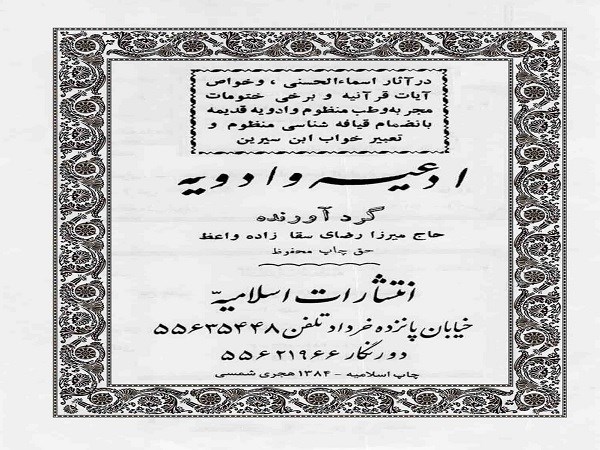 در آثار اسماءالحسنی ، وخواص
آیات قرآنیه و برخی ختومات
مجربه وطب منظوم وادویه قدیمه
بانضمام قیافه شناسی منظوم و
تعبیر خواب ابن سیرین
ادعیه وادویه
گردآورنده
حاج میرزا رضای سقا زاده واعظ
حق چاپ محفوظ
انتشارات اسلامیه
خیابان پانزده خرداد تلفن ۵۵۶۳۵۴۴۸
دورنگار ۵۵۶۲۱۹۶۶
چاپ اسلامیه - ۱۳۸۴ هجری شمسی